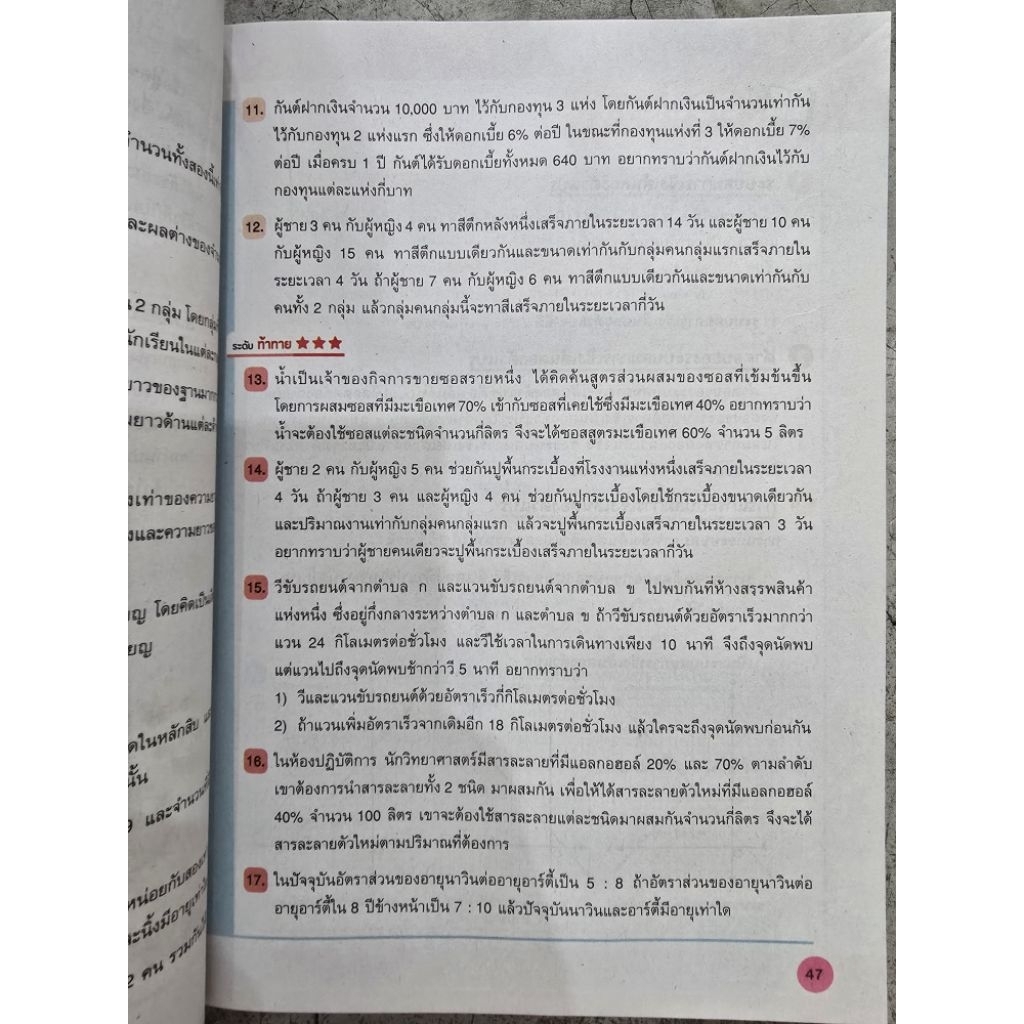 านวนทั้งสองนี้เท่า
ละผลต่างของจำน
น 2 กลุ่ม โดยกลุ่ม
นักเรียนในแต่ละ
ยาวของฐานมากก
มยาวด้านแต่ละด้
งเท่าของความยา
งและความยาวข
ญ โดยคิดเป็น
ยญ
ดในหลักสิบ แ
นั้น
9 และจำนวนที่
หน่อยกับสอง
ละนี้งมีอายุเท่าใด
2 คน รวมกัน
11. กันต์ฝากเงินจำนวน 10,000 บาท ไว้กับกองทุน 3 แห่ง โดยกันต์ฝากเงินเป็นจำนวนเท่ากัน
ไว้กับกองทุน 2 แห่งแรก ซึ่งให้ดอกเบี้ย 6% ต่อปี ในขณะที่กองทุนแห่งที่ 3 ให้ดอกเบี้ย 7%
ต่อปี เมื่อครบ 1 ปี กันต์ได้รับดอกเบี้ยทั้งหมด 640 บาท อยากทราบว่ากันต์ฝากเงินไว้กับ
กองทุนแต่ละแห่งกี่บาท
12. ผู้ชาย 3 คน กับผู้หญิง 4 คน ทาสีตึกหลังหนึ่งเสร็จภายในระยะเวลา 14 วัน และผู้ชาย 10 คน
กับผู้หญิง 15 คน ทาสีตึกแบบเดียวกันและขนาดเท่ากันกับกลุ่มคนกลุ่มแรกเสร็จภายใน
ระยะเวลา 4 วัน ถ้าผู้ชาย 7 คน กับผู้หญิง 6 คน ทาสีตึกแบบเดียวกันและขนาดเท่ากันกับ
คนทั้ง 2 กลุ่ม แล้วกลุ่มคนกลุ่มนี้จะทาสีเสร็จภายในระยะเวลากี่วัน
ระดับ ท้าทาย ★★★
13. น้ำเป็นเจ้าของกิจการขายซอสรายหนึ่ง ได้คิดค้นสูตรส่วนผสมของซอสที่เข้มข้นขึ้น
โดยการผสมซอสที่มีมะเขือเทศ 70% เข้ากับซอสที่เคยใช้ซึ่งมีมะเขือเทศ 40% อยากทราบว่า
น้ำจะต้องใช้ซอสแต่ละชนิดจำนวนกี่ลิตร จึงจะได้ซอสสูตรมะเขือเทศ 60% จำนวน 5 ลิตร
14. ผู้ชาย 2 คน กับผู้หญิง 5 คน ช่วยกันปูพื้นกระเบื้องที่โรงงานแห่งหนึ่งเสร็จภายในระยะเวลา
4 วัน ถ้าผู้ชาย 3 คน และผู้หญิง 4 คน ช่วยกันปูกระเบื้องโดยใช้กระเบื้องขนาดเดียวกัน
และปริมาณงานเท่ากับกลุ่มคนกลุ่มแรก แล้วจะปูพื้นกระเบื้องเสร็จภายในระยะเวลา 3 วัน
อยากทราบว่าผู้ชายคนเดียวจะปูพื้นกระเบื้องเสร็จภายในระยะเวลากี่วัน
15. วีขับรถยนต์จากตำบล ก และแวนขับรถยนต์จากตำบล ข ไปพบกันที่ห้างสรรพสินค้า
แห่งหนึ่ง ซึ่งอยู่กึ่งกลางระหว่างตำบล ก และตำบล ข ถ้าวีขับรถยนต์ด้วยอัตราเร็วมากกว่า
แวน 24 กิโลเมตรต่อชั่วโมง และวีใช้เวลาในการเดินทางเพียง 10 นาที จึงถึงจุดนัดพบ
แต่แวนไปถึงจุดนัดพบช้ากว่าวี 5 นาที อยากทราบว่า
1) วีและแวนขับรถยนต์ด้วยอัตราเร็วกี่กิโลเมตรต่อชั่วโมง
2) ถ้าแวนเพิ่มอัตราเร็วจากเดิมอีก 18 กิโลเมตรต่อชั่วโมง แล้วใครจะถึงจุดนัดพบก่อนกัน
16. ในห้องปฏิบัติการ นักวิทยาศาสตร์มีสารละลายที่มีแอลกอฮอล์ 20% และ 70% ตามลำดับ
เขาต้องการนำสารละลายทั้ง 2 ชนิด มาผสมกัน เพื่อให้ได้สารละลายตัวใหม่ที่มีแอลกอฮอล์
40% จำนวน 100 ลิตร เขาจะต้องใช้สารละลายแต่ละชนิดมาผสมกันจำนวนกี่ลิตร จึงจะได้
สารละลายตัวใหม่ตามปริมาณที่ต้องการ
17. ในปัจจุบันอัตราส่วนของอายุนาวินต่ออายุอาร์ตี้เป็น 5 : 8 ถ้าอัตราส่วนของอายุนาวินต่อ
อายุอาร์ตี้ใน 8 ปีข้างหน้าเป็น 7 : 10 แล้วปัจจุบันนาวินและอาร์ตี้มีอายุเท่าใด
47